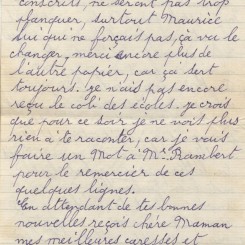 conscrits, ne seront pas trop
flanguer, surtout Maurice
lui qui ne forçais pas, ça va le
changer, merci encore plus de
l'autre papier, car ça sert
toujours. je n'ais pas encore
reçue le coli des écoles. je crois
que pour ce soir je ne vois plus
rien a te raconter, car je vais
faire un Mot à Mr. Rambert
pour le remercier de ces
quelques lignes.
En attendant de tes bonnes
nouvelles reçois chère Maman
mes meilleures caresses et